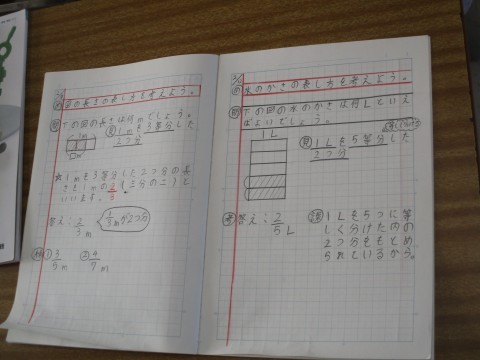 図の長さの表し方を考えよう。
下の図の長さは何mでしょう。
1m
1mを3等分した
2つ分
□m
☆1mを3等分した2つ分の長
さを1mの2/3(三分の二)と
いいます。
答え:2/3m
1/3mが2つ分
①3/5m ②4/7m
水のかさの表し方を考えよう。
下の図の水のかさは何Lといえ
ばよいでしょう。
1L
1Lを5等分した
2つ分
答え:2/5L
1Lを5つに等
しく分けたの
2つ分をもとめ
られているから。